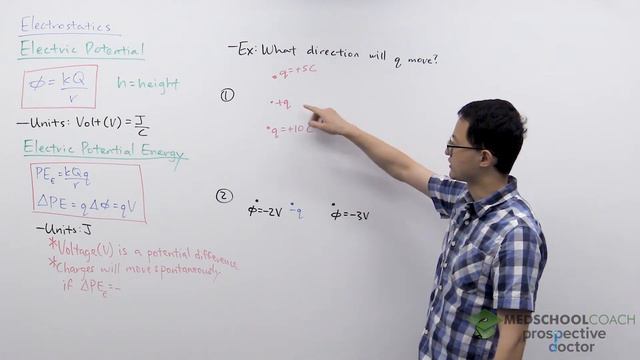 Electrostatics
Electric Potential
φ = kQ/r
h = height
—Units: Volt(V) = J/C
Electric Potential Energy
PE_E = kQ/r q
ΔPE = qΔφ = qV
—Units: J
*Voltage(V) is a potential difference
*Charges will move spontaneously
if ΔPE_E = -
—Ex: What direction will q move?
q = +5C
①
+q
q = +10C
②
φ = -2V
-q
φ = -3V
MEDSCHOOLCOACH
prospective
doctor